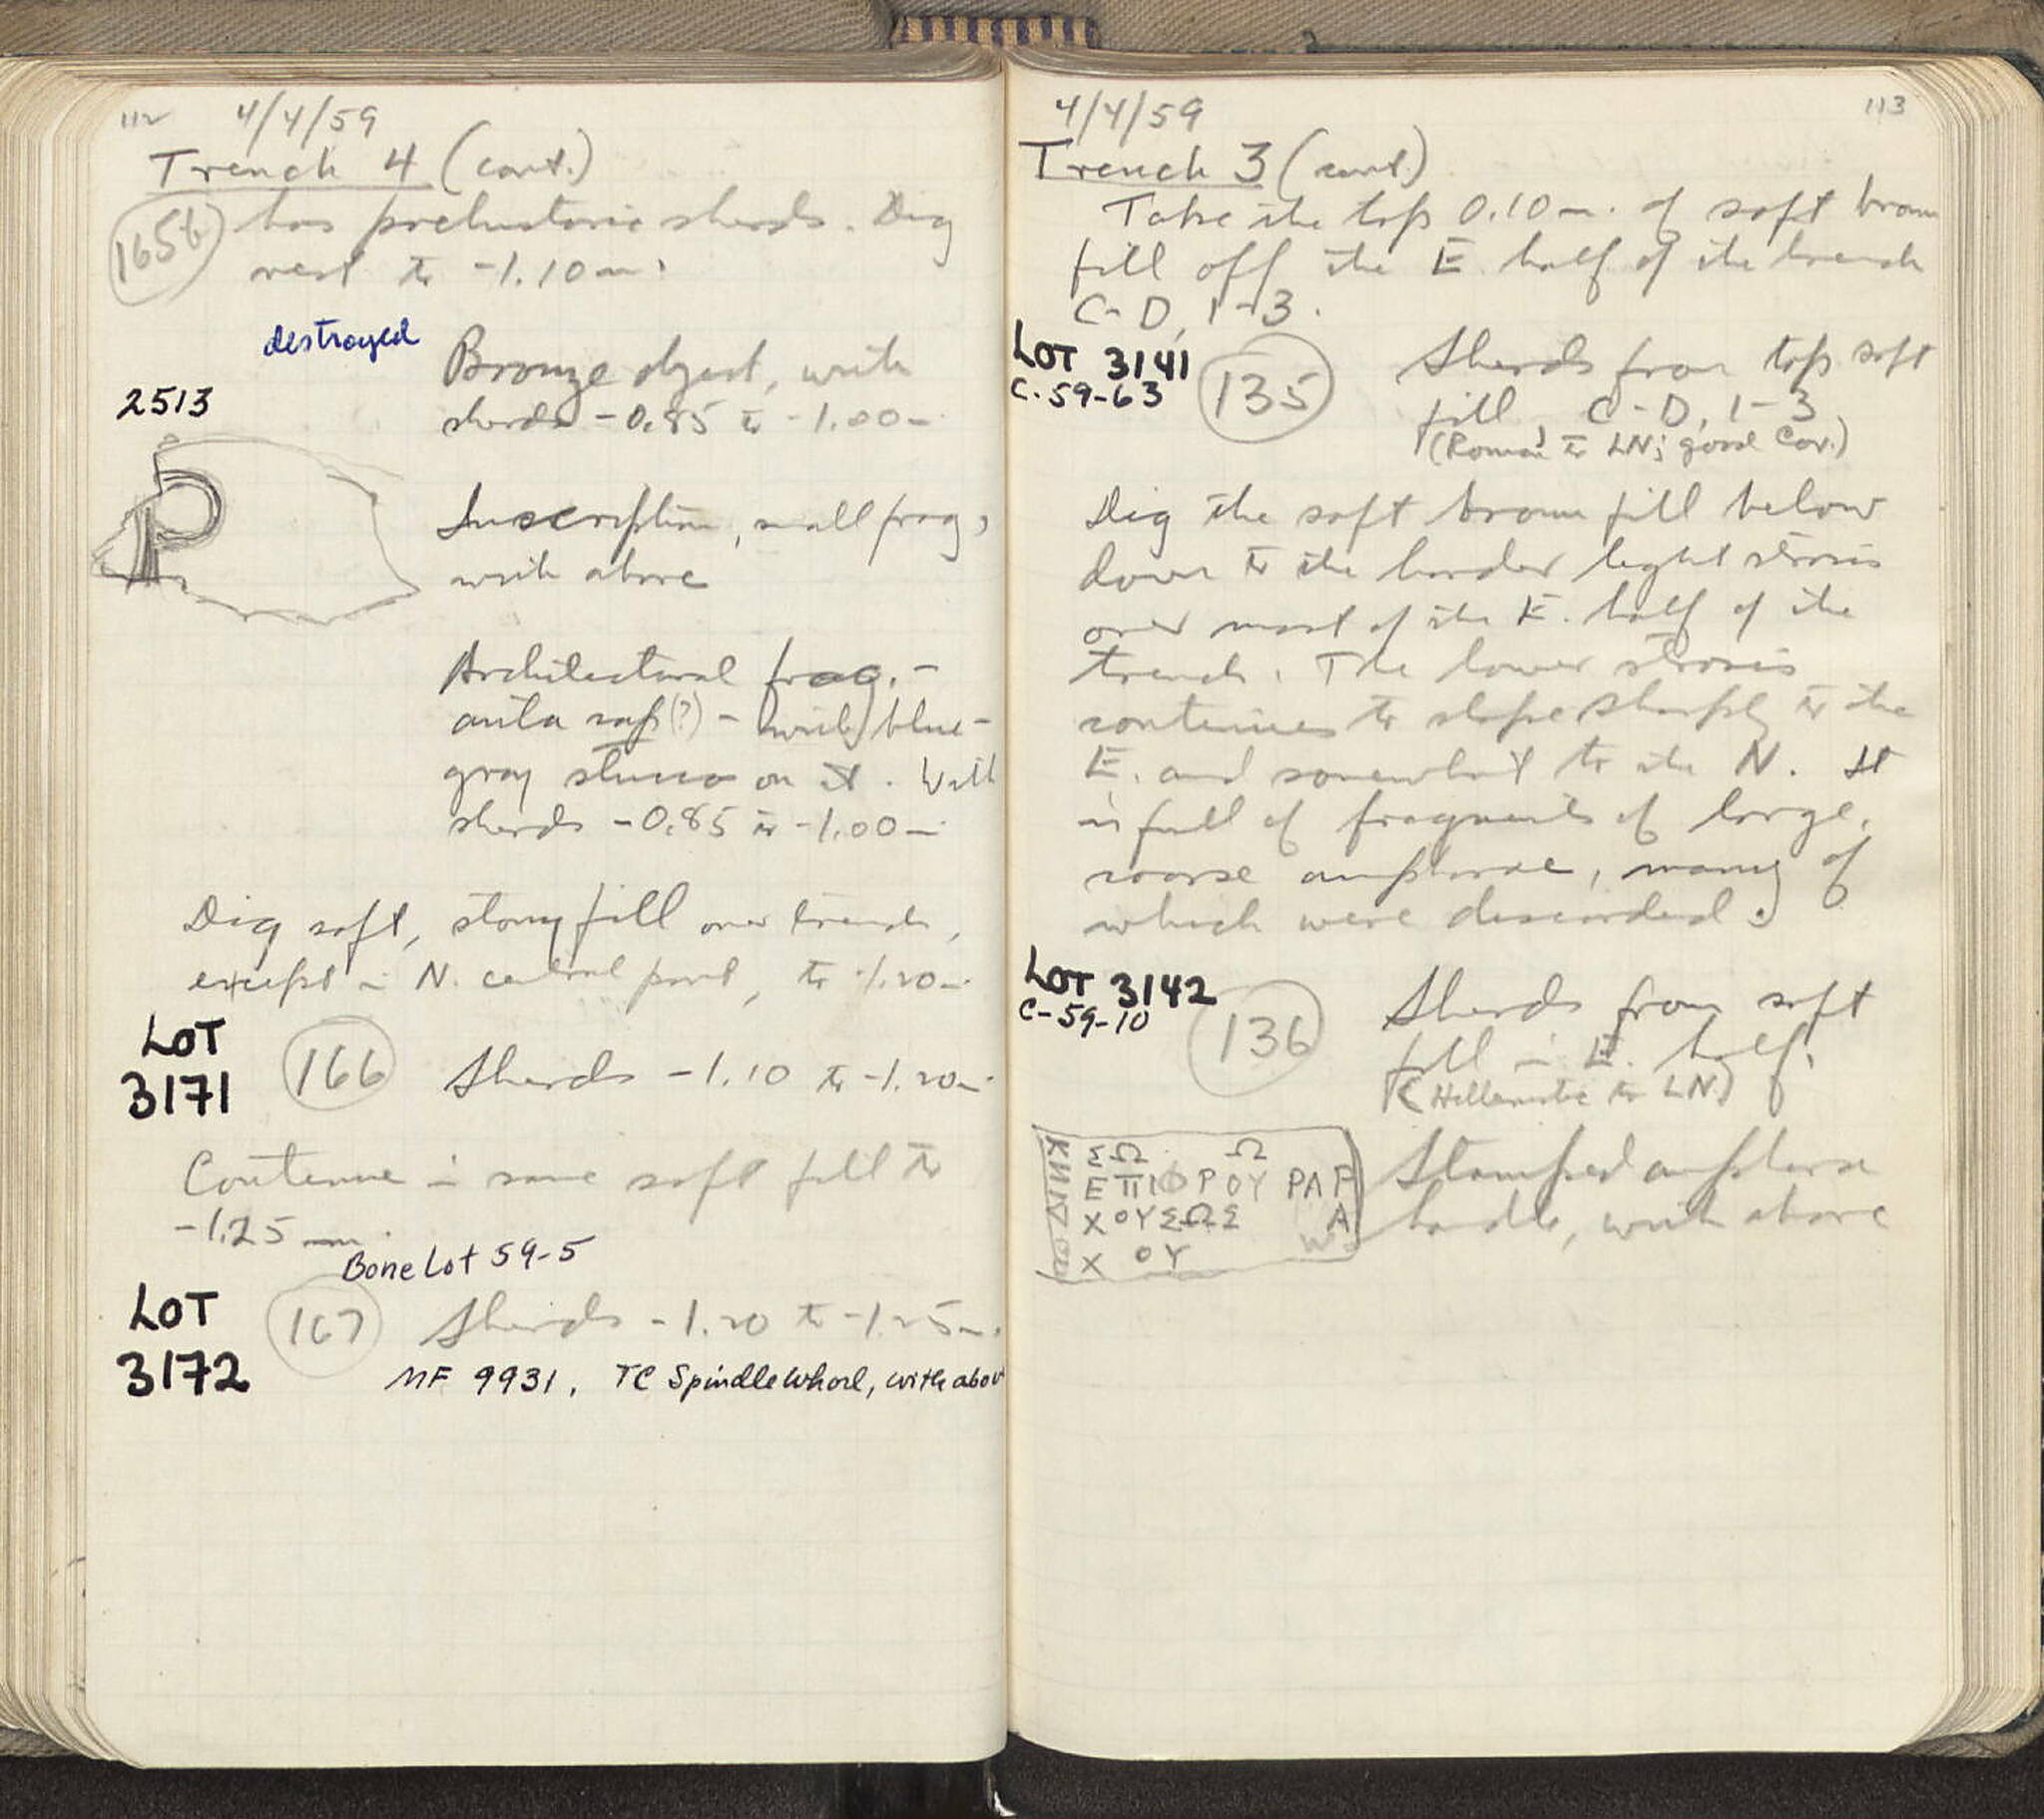 112 4/4/59
Trench 4 (cont.)
165b has prehistoric sherds. Dig
rest to -1.10 m.
destroyed
Bronze object, with
sherds -0.85 to -1.00 m.
2513
P
Inscription, small frag,
with above
Architectural frag. -
anta cap (?) - with blue-
gray stucco on it. With
sherds -0.85 to -1.00 m.
Dig soft, stony fill over trench,
except in N. central part, to -1.20 m.
LOT
3171
166 Sherds -1.10 to -1.20 m.
Continue in same soft fill to
-1.25 m.
Bone Lot 59-5
LOT
3172
167 Sherds -1.20 to -1.25 m.
MF 9931, TC Spindle Whorl, with above
4/4/59 113
Trench 3 (cont)
Take the top 0.10 m. of soft brown
fill off the E. half of the trench
C-D, 1-3.
LOT 3141
C-59-63
135 Sherds from top soft
fill C-D, 1-3
(Roman to LN; good Cor.)
Dig the soft brown fill below
down to the harder light strosis
over most of the E. half of the
trench. The lower strosis
continues to slope sharply to the
E. and somewhat to the N. It
is full of fragments of large,
coarse amphorae, many of
which were discarded.
LOT 3142
C-59-10
136 Sherds from soft
fill in E. half.
(Hellenistic to LN)
ΣΩ Ω
ΕΠΙΦΡΟΥ ΡΑΡ
ΧΟΥΣΩΣ Α
Χ ΟΥ
ΚΝΙΔ
Stamped amphora
handle, with above